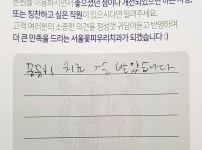 본원을 이용하시면서 좋으셨던 점이나 개선되었으면 하는 사항,
또는 칭찬하고 싶은 직원이 있으시다면 말려주세요.
고객 여러분의 소중한 의견을 정성껏 귀담아듣고 반영하여
더 큰 만족을 드리는 서울꽃피우리치과가 되겠습니다 :)
꼼꼼히 치료 잘 받았습니다